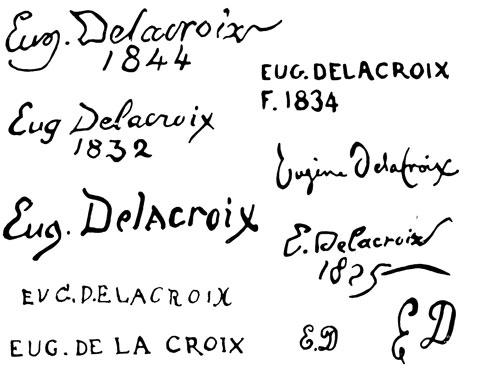 Eug. Delacroix
1844
EUG. DELACROIX
F. 1834
Eug Delacroix
1832
Eugène Delacroix
Eug. Delacroix
E. Delacroix
1825
EUG. DELACROIX
EUG. DE LA CROIX
E.D
E D